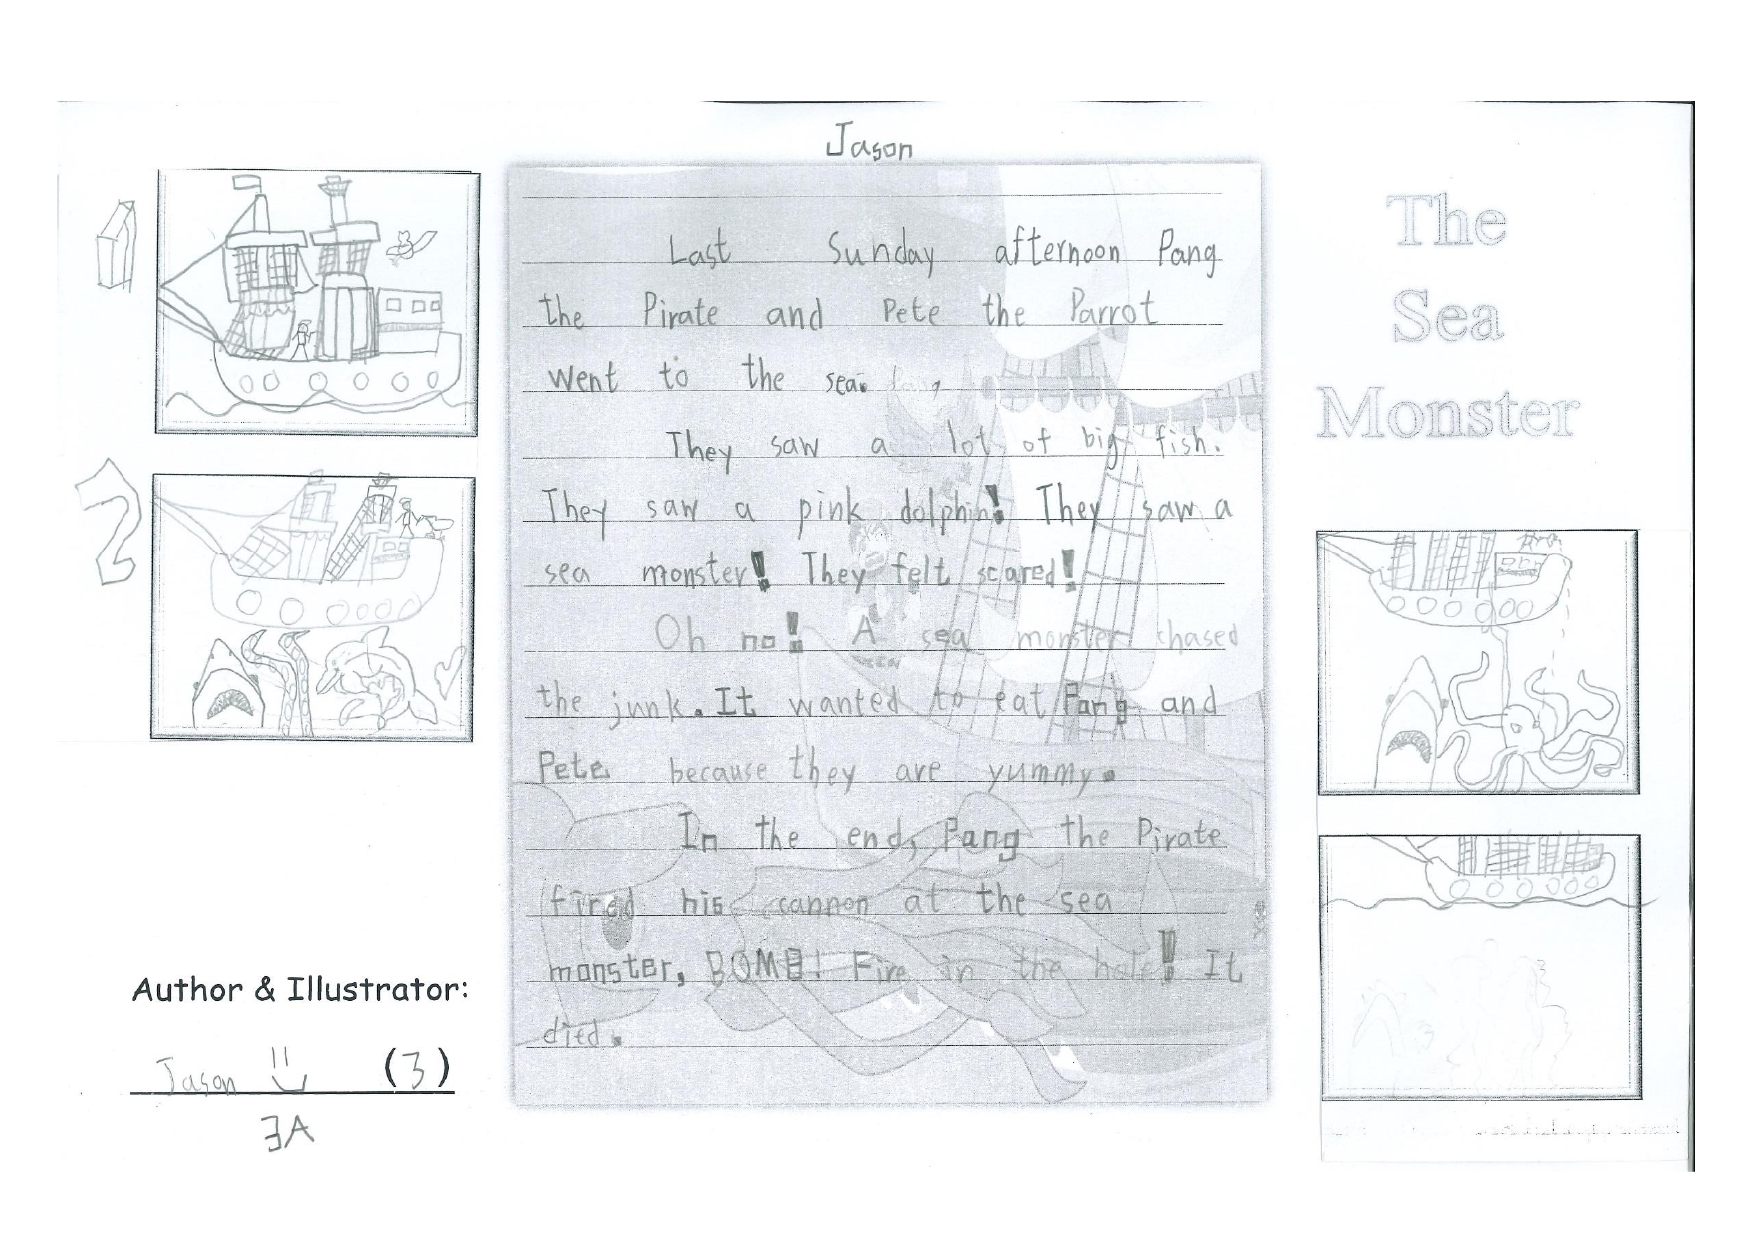 Jason
1
2
Last Sunday afternoon Pang
the Pirate and Pete the Parrot
went to the sea.
They saw a lot of big fish.
They saw a pink dolphin! They saw a
sea monster! They felt scared!
Oh no! A sea monster chased
the junk. It wanted to eat Pang and
Pete because they are yummy.
In the end, Pang the Pirate
fired his cannon at the sea
monster, BOMB! Fire in the hole! It
died.
Author & Illustrator:
Jason (3)
3A
The
Sea
Monster